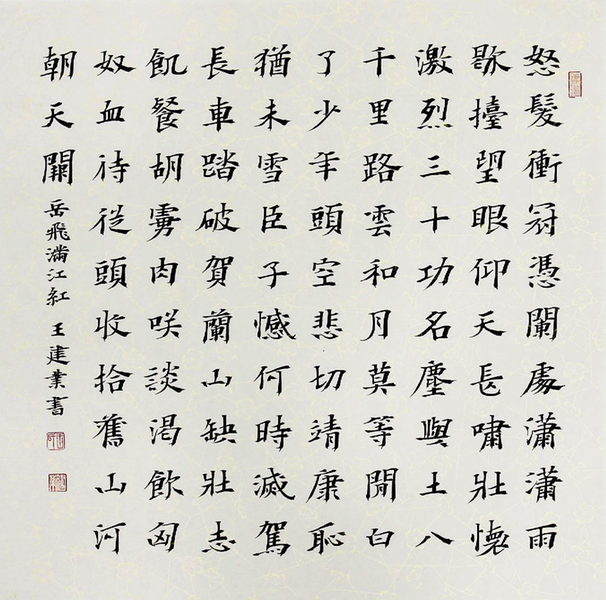 怒髮衝冠憑闌處瀟瀟雨
歇擡望眼仰天長嘯壯懷
激烈三十功名塵與土八
千里路雲和月莫等閒白
了少年頭空悲切靖康恥
猶未雪臣子憾何時滅駕
長車踏破賀蘭山缺壯志
飢餐胡虜肉咲談渴飲匈
奴血待從頭收拾舊山河
朝天闕
岳飛滿江紅 王建業書